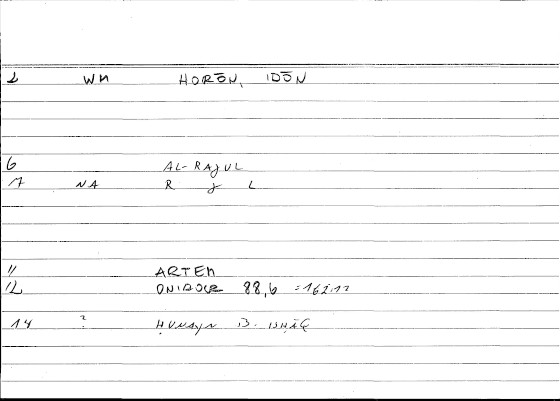 2 WM HORŌN, IDŌN
6 AL-RAJUL
17 NA R J L
11 ARTEM
12 ONIROCR 88,6 =162:12
14 ? ḤUNAYN B. ISḤĀQ